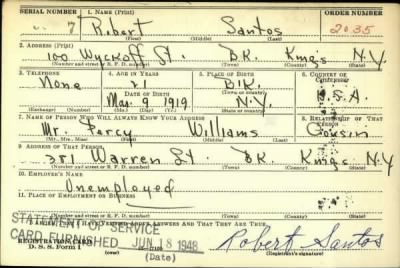 SERIAL NUMBER 1. NAME (Print) ORDER NUMBER
7 Robert Santos 2035
(First) (Middle) (Last)
2. ADDRESS (Print)
100 Wyckoff St. BK. Kings N.Y.
(Number and street or R. F. D. number) (Town) (County) (State)
3. TELEPHONE 4. AGE IN YEARS 5. PLACE OF BIRTH 6. COUNTRY OF CITIZENSHIP
None 21 BK.
DATE OF BIRTH
Mar. 9 1919 N.Y. U.S.A.
(Exchange) (Number) (Mo.) (Day) (Yr.) (State or country)
7. NAME OF PERSON WHO WILL ALWAYS KNOW YOUR ADDRESS 8. RELATIONSHIP OF THAT PERSON
Mr. Percy Williams Cousin
(Mr., Mrs., Miss) (First) (Middle) (Last)
9. ADDRESS OF THAT PERSON
381 Warren St. BK. Kings N.Y.
(Number and street or R. F. D. number) (Town) (County) (State)
10. EMPLOYER'S NAME
Unemployed
11. PLACE OF EMPLOYMENT OR BUSINESS
(Number and street or R. F. D. number) (Town) (County) (State)
ANSWERS AND THAT THEY ARE TRUE.
STATEMENT OF SERVICE
CARD FURNISHED JUN 18 1948
(Date)
REGISTRATION CARD
D. S. S. Form 1
Robert Santos
(Registrant's signature)